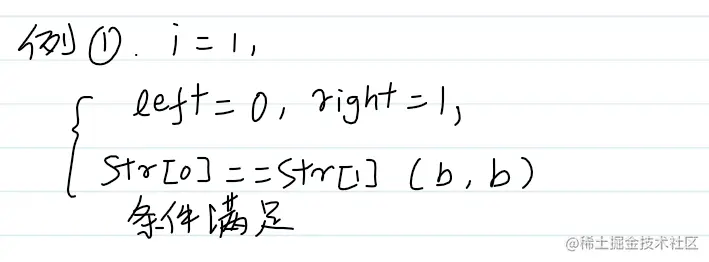 例①. i=1,
left=0, right=1,
Str[0]==Str[1] (b, b)
条件满足
@稀土掘金技术社区